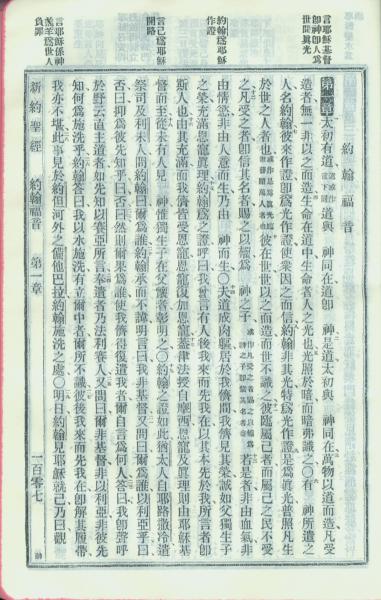 言耶穌基督
卽神卽人爲
世間眞光
約翰爲耶穌
作證
言己爲耶穌
開路
言耶穌係神
羔羊爲世人
負罪
約翰福音
第一章 太初有道道或作言下同道與 神同在道卽 神是道太初與 神同在萬物以道而造凡受
造者無一非以之而造生命在道中生命者人之光也光照於暗而暗弗識之〇有 神所遣之
人名約翰彼來作證卽爲光作證使衆因之而信約翰非其光特爲光作證是爲眞光普照凡生
於世之人者也彼在世世以之而造而世不識之彼臨屬己者而屬己之民不受
之凡受之者卽信其名者賜之以權爲 神之子若是者非由血氣非
由情慾非由人意而生乃由 神而生〇夫道成肉軀居於我儕間我儕見其榮誠如父獨生子
之榮充滿恩寵眞理約翰爲之證呼曰我曾言有人後我來而先我在以其本先於我所言者卽
斯人也由其充滿而我儕皆受恩寵恩寵復加恩寵蓋律法授自摩西恩寵及眞理則由耶穌基
督而至從未有人見 神惟獨生子在父懷者彰明之〇約翰之證如此猶太人自耶路撒冷遣
祭司及利未人問約翰曰爾爲誰約翰承而不諱明言曰我非基督又問曰爾爲誰以利亞乎曰
否曰抑爲彼先知乎曰否曰然則爾果爲誰使我儕得復遣我者爾自言爲何人答曰我卽聲呼
於野云直主道者如先知以賽亞所言奉遣者乃法利賽人又問曰爾非基督非以利亞非彼先
知何爲施洗乎約翰答曰我以水施洗有立爾中者爾所不識彼後我來而先我在卽解其履帶
我亦不堪此事見於約但河外之伯他巴拉約翰施洗之處〇明日約翰見耶穌就己乃曰觀
新約聖經 約翰福音 第一章 一百零七